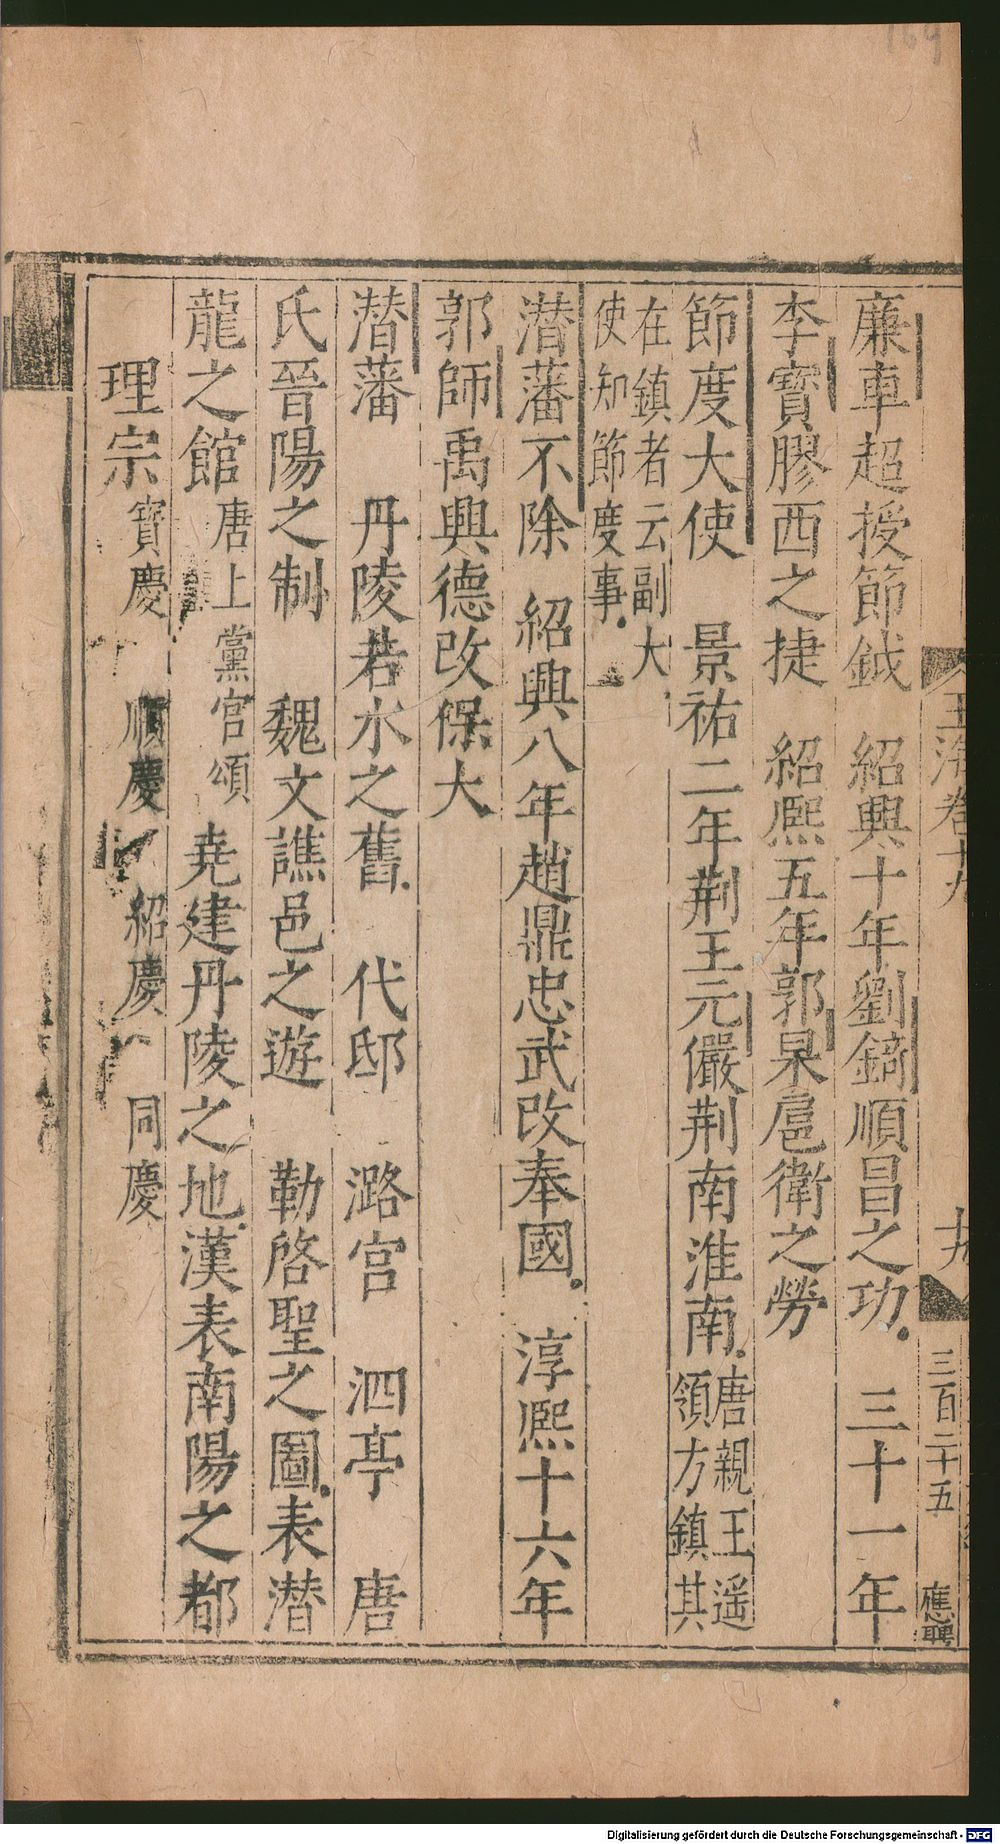 廉車超授節鉞　紹興十年劉錡順昌之功　三十一年
李寶膠西之捷　紹熙五年郭杲扈衛之勞
節度大使　景祐二年荆王元儼荆南淮南唐親王遥領方鎮其
在鎮者云副大使知節度事
潜藩不除　紹興八年趙鼎忠武改奉國　淳熙十六年
郭師禹興德改保大
潜藩　丹陵若水之舊　代邸　潞宫　泗亭　唐
氏晉陽之制　魏文譙邑之遊　勒啓聖之圖表潜
龍之館唐上黨宫頌　堯建丹陵之地漢表南陽之都
理宗寳慶　順慶　紹慶　同慶
玉海卷十九
十九
三百二十五
應聘
164
Digitalisierung gefördert durch die Deutsche Forschungsgemeinschaft - DFG